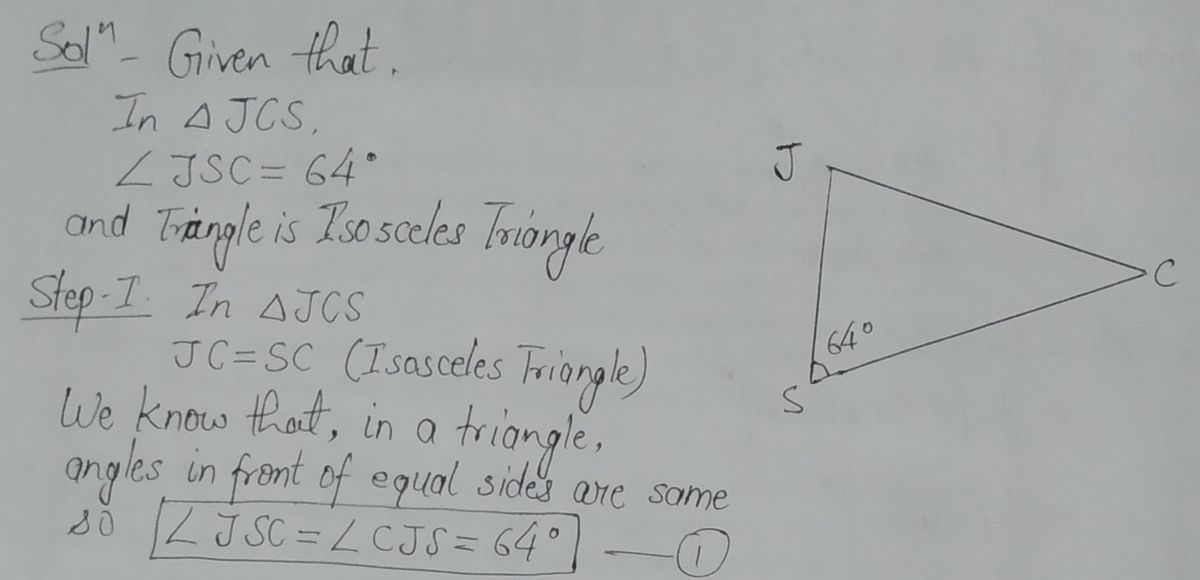 Solⁿ - Given that.
In △ JCS,
∠ JSC = 64°
and Triangle is Isosceles Triangle
Step-I. In △JCS
JC = SC (Isasceles Triangle)
We know that, in a triangle,
angles in front of equal sides are same
so ∠ JSC = ∠ CJS = 64° — ①
J
C
64°
S